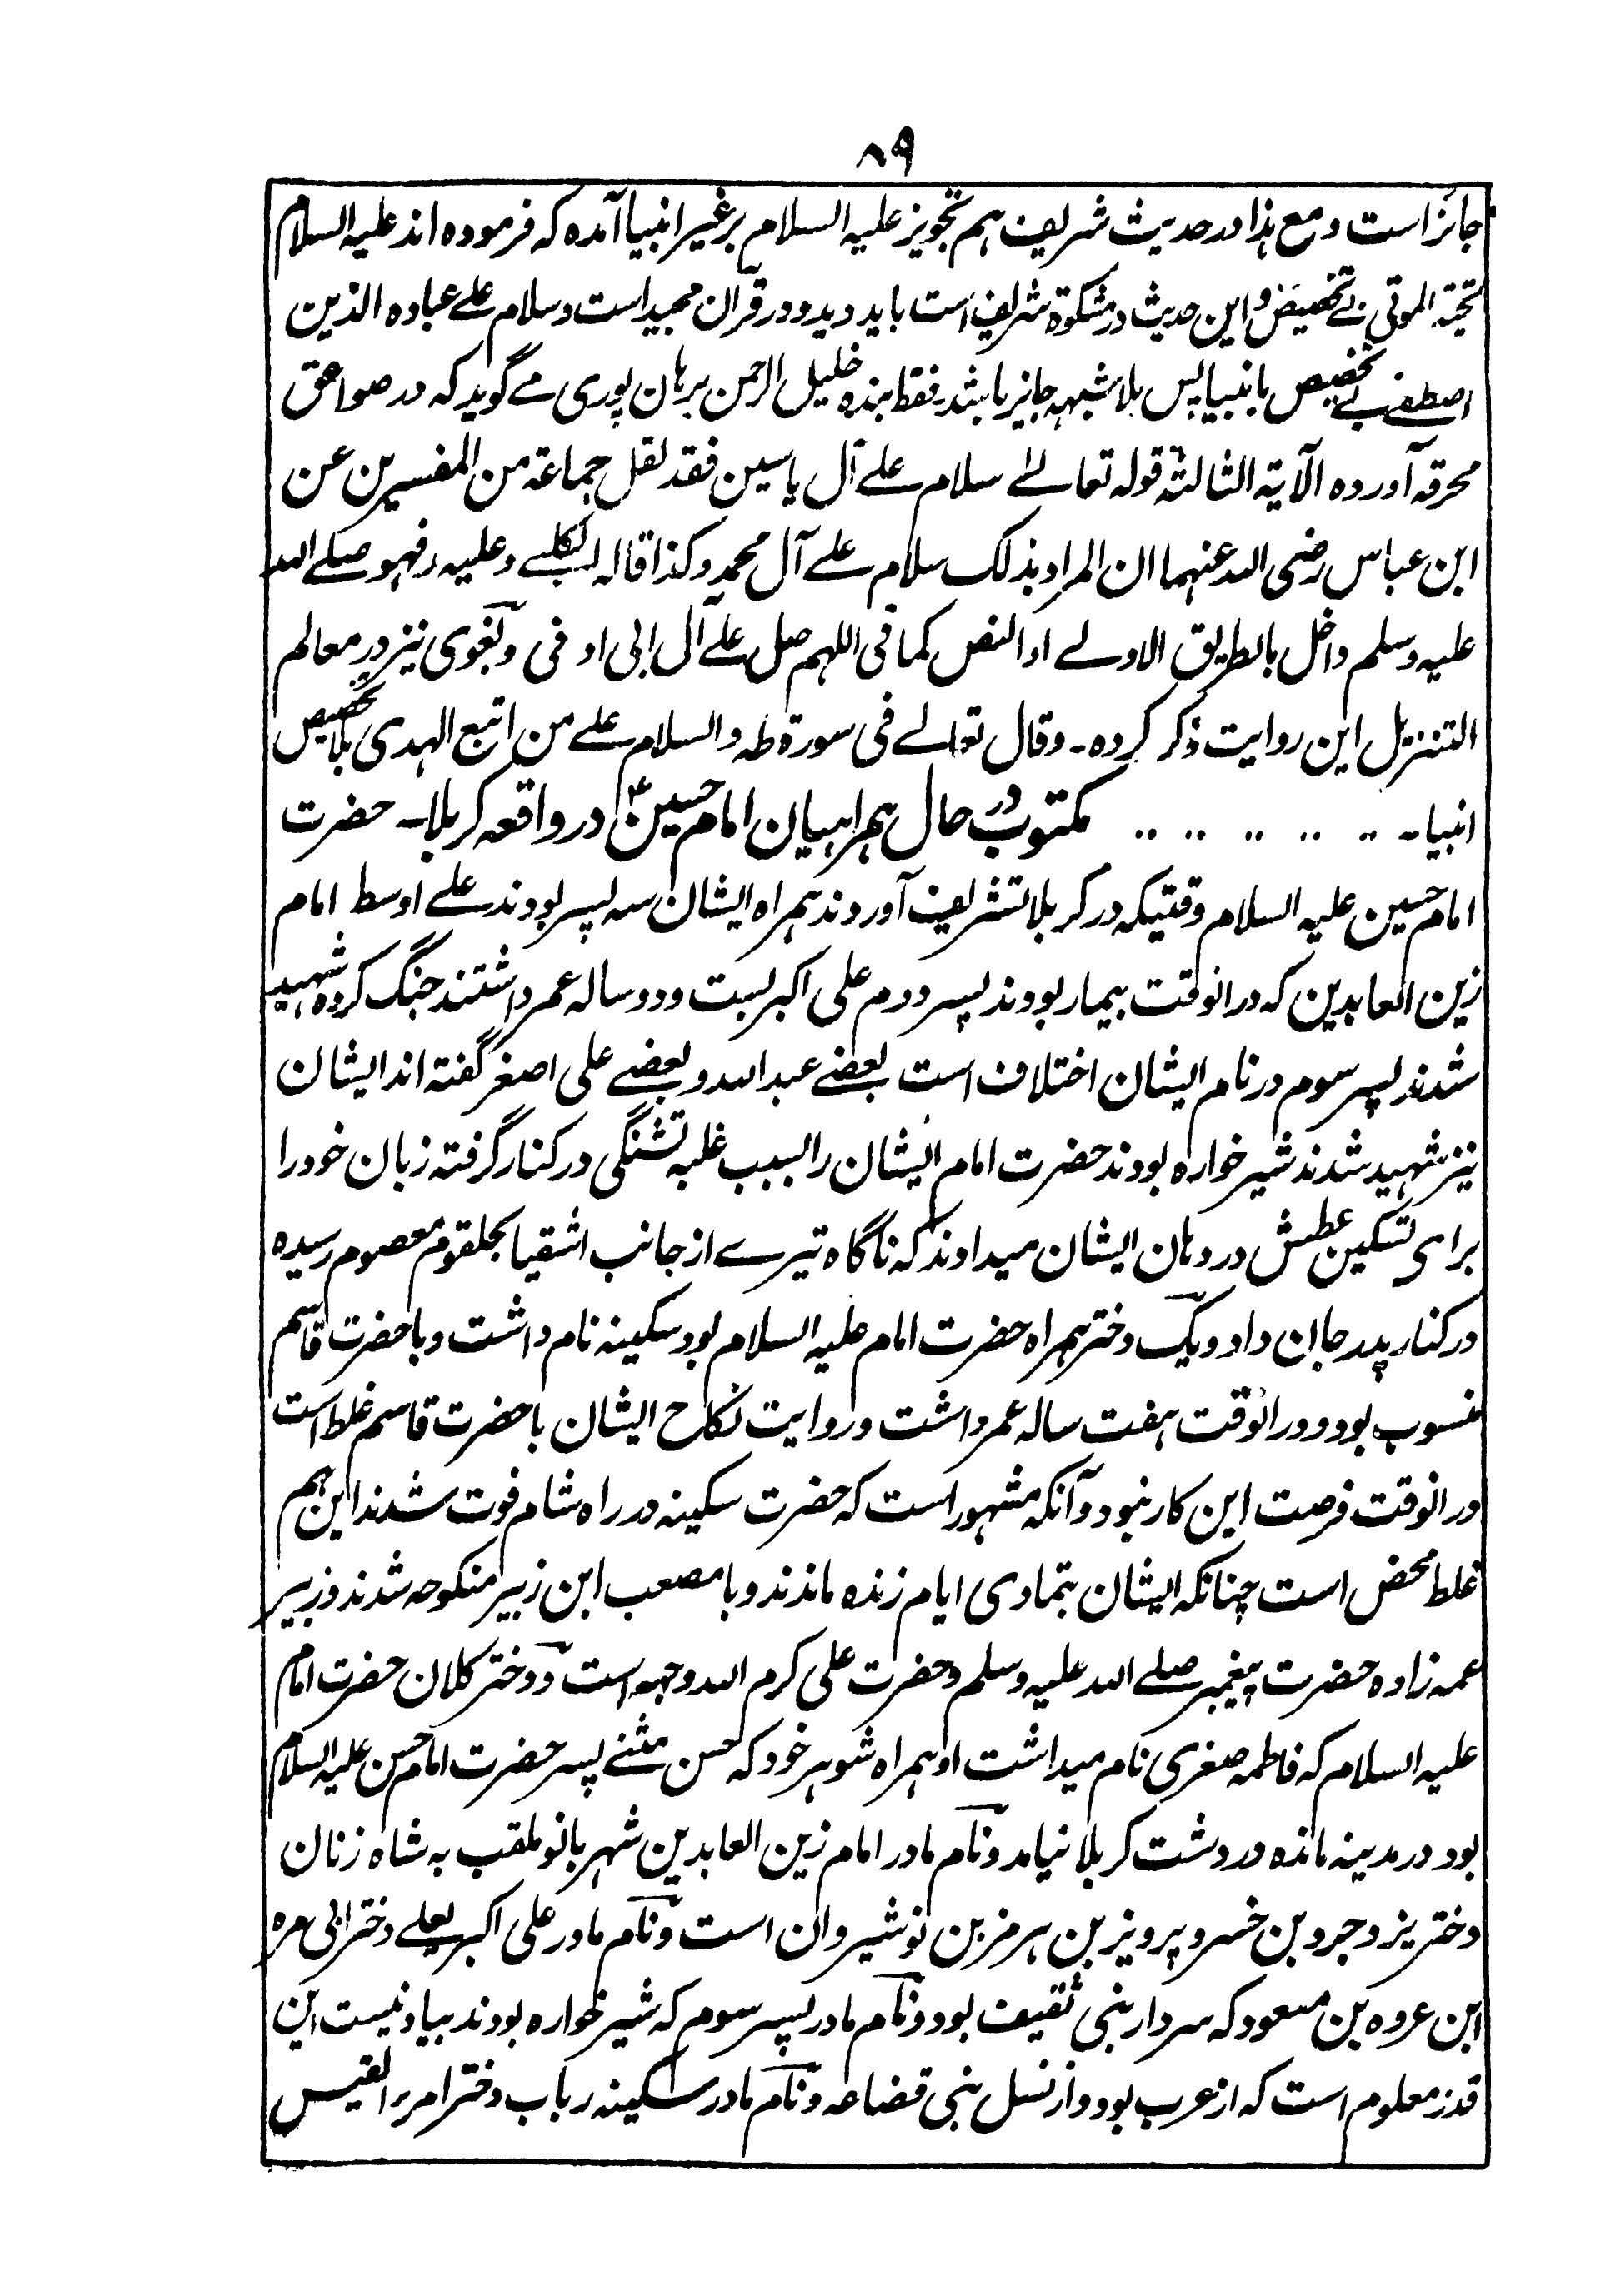 ۸۹
جائز است و مع ہذا در حدیث شریف ہم تجویز علیہ السلام بر غیر انبیا آمدہ کہ فرمودہ اند علیہ السلام
تحیۃ الموتی بے تخصیص و این حدیث در مشکوۃ شریف است باید دید و در قرآن مجید است و سلام علے عبادہ الذین
اصطفے بے تخصیص بانبیا پس بلا شبہہ جایز باشد۔ فقط بندہ خلیل الرحمن برہان پوری مے گوید کہ در صواعق
محرقہ آوردہ الآیۃ الثالثۃ قولہ تعالےٰ سلام علے آل یاسین فقد نقل جماعۃ من المفسرین عن
ابن عباس رضی اللہ عنہما ان المراد بذلک سلام علے آل محمد و کذا قالہ الکلبے و علیہ فہو صلے اللہ
علیہ وسلم داخل بالطریق الاولے او النص کما فی اللہم صل علے آل ابی اوفی و بغوی نیز در معالم
التنزیل این روایت ذکر کردہ۔ و قال تعالے فی سورۃ طہ والسلام علے من اتبع الہدی بلا تخصیص
انبیا۔ .. .. .. .. .. مکتوب در حال ہمراہیان امام حسینؑ در واقعہ کربلا۔ حضرت
امام حسین علیہ السلام وقتیکہ در کربلا تشریف آوردند ہمراہ ایشان سہ پسر بودند علے اوسط امام
زین العابدین کہ درانوقت بیمار بودند پسر دوم علی اکبر بست و دو سالہ عمر داشتند جنگ کردہ شہید
شدند پسر سوم در نام ایشان اختلاف است بعضے عبد اللہ و بعضے علی اصغر گفتہ اند ایشان
نیز شہید شدند شیر خوارہ بودند حضرت امام ایشان را بسبب غلبہ تشنگی در کنار گرفتہ زبان خود را
برای تسکین عطش در دہان ایشان میدادند کہ ناگاہ تیرے از جانب اشقیا بحلقوم معصوم رسیدہ
در کنار پدر جان داد و یک دختر ہمراہ حضرت امام علیہ السلام بود سکینہ نام داشت و با حضرت قاسم
منسوب بود و درانوقت ہفت سالہ عمر داشت و روایت نکاح ایشان با حضرت قاسم غلط است
درانوقت فرصت این کار نبود و آنکہ مشہور است کہ حضرت سکینہ در راہ شام فوت شدند این ہم
غلط محض است چنانکہ ایشان بتمادی ایام زندہ ماندند و با مصعب ابن زبیر منکوحہ شدند و زبیر
عمہ زادہ حضرت پیغمبر صلے اللہ علیہ وسلم و حضرت علی کرم اللہ وجہہ است و دختر کلان حضرت امام
علیہ السلام کہ فاطمہ صغری نام میداشت او ہمراہ شوہر خود کہ حسن مثنے پسر حضرت امام حسن علیہ السلام
بود در مدینہ ماندہ در دشت کربلا نیامد و نام مادر امام زین العابدین شہر بانو ملقب بہ شاہ زنان
دختر یزدجرد بن خسرو پرویز بن ہرمز بن نوشیروان است و نام مادر علی اکبر یعلے دختر ابی مرہ
ابن عروہ بن مسعود کہ سردار بنی ثقیف بود و نام مادر پسر سوم کہ شیر خوارہ بودند بیاد نیست این
قدر معلوم است کہ از عرب بود و از نسل بنی قضاعہ و نام مادر سکینہ رباب دختر امرء القیس